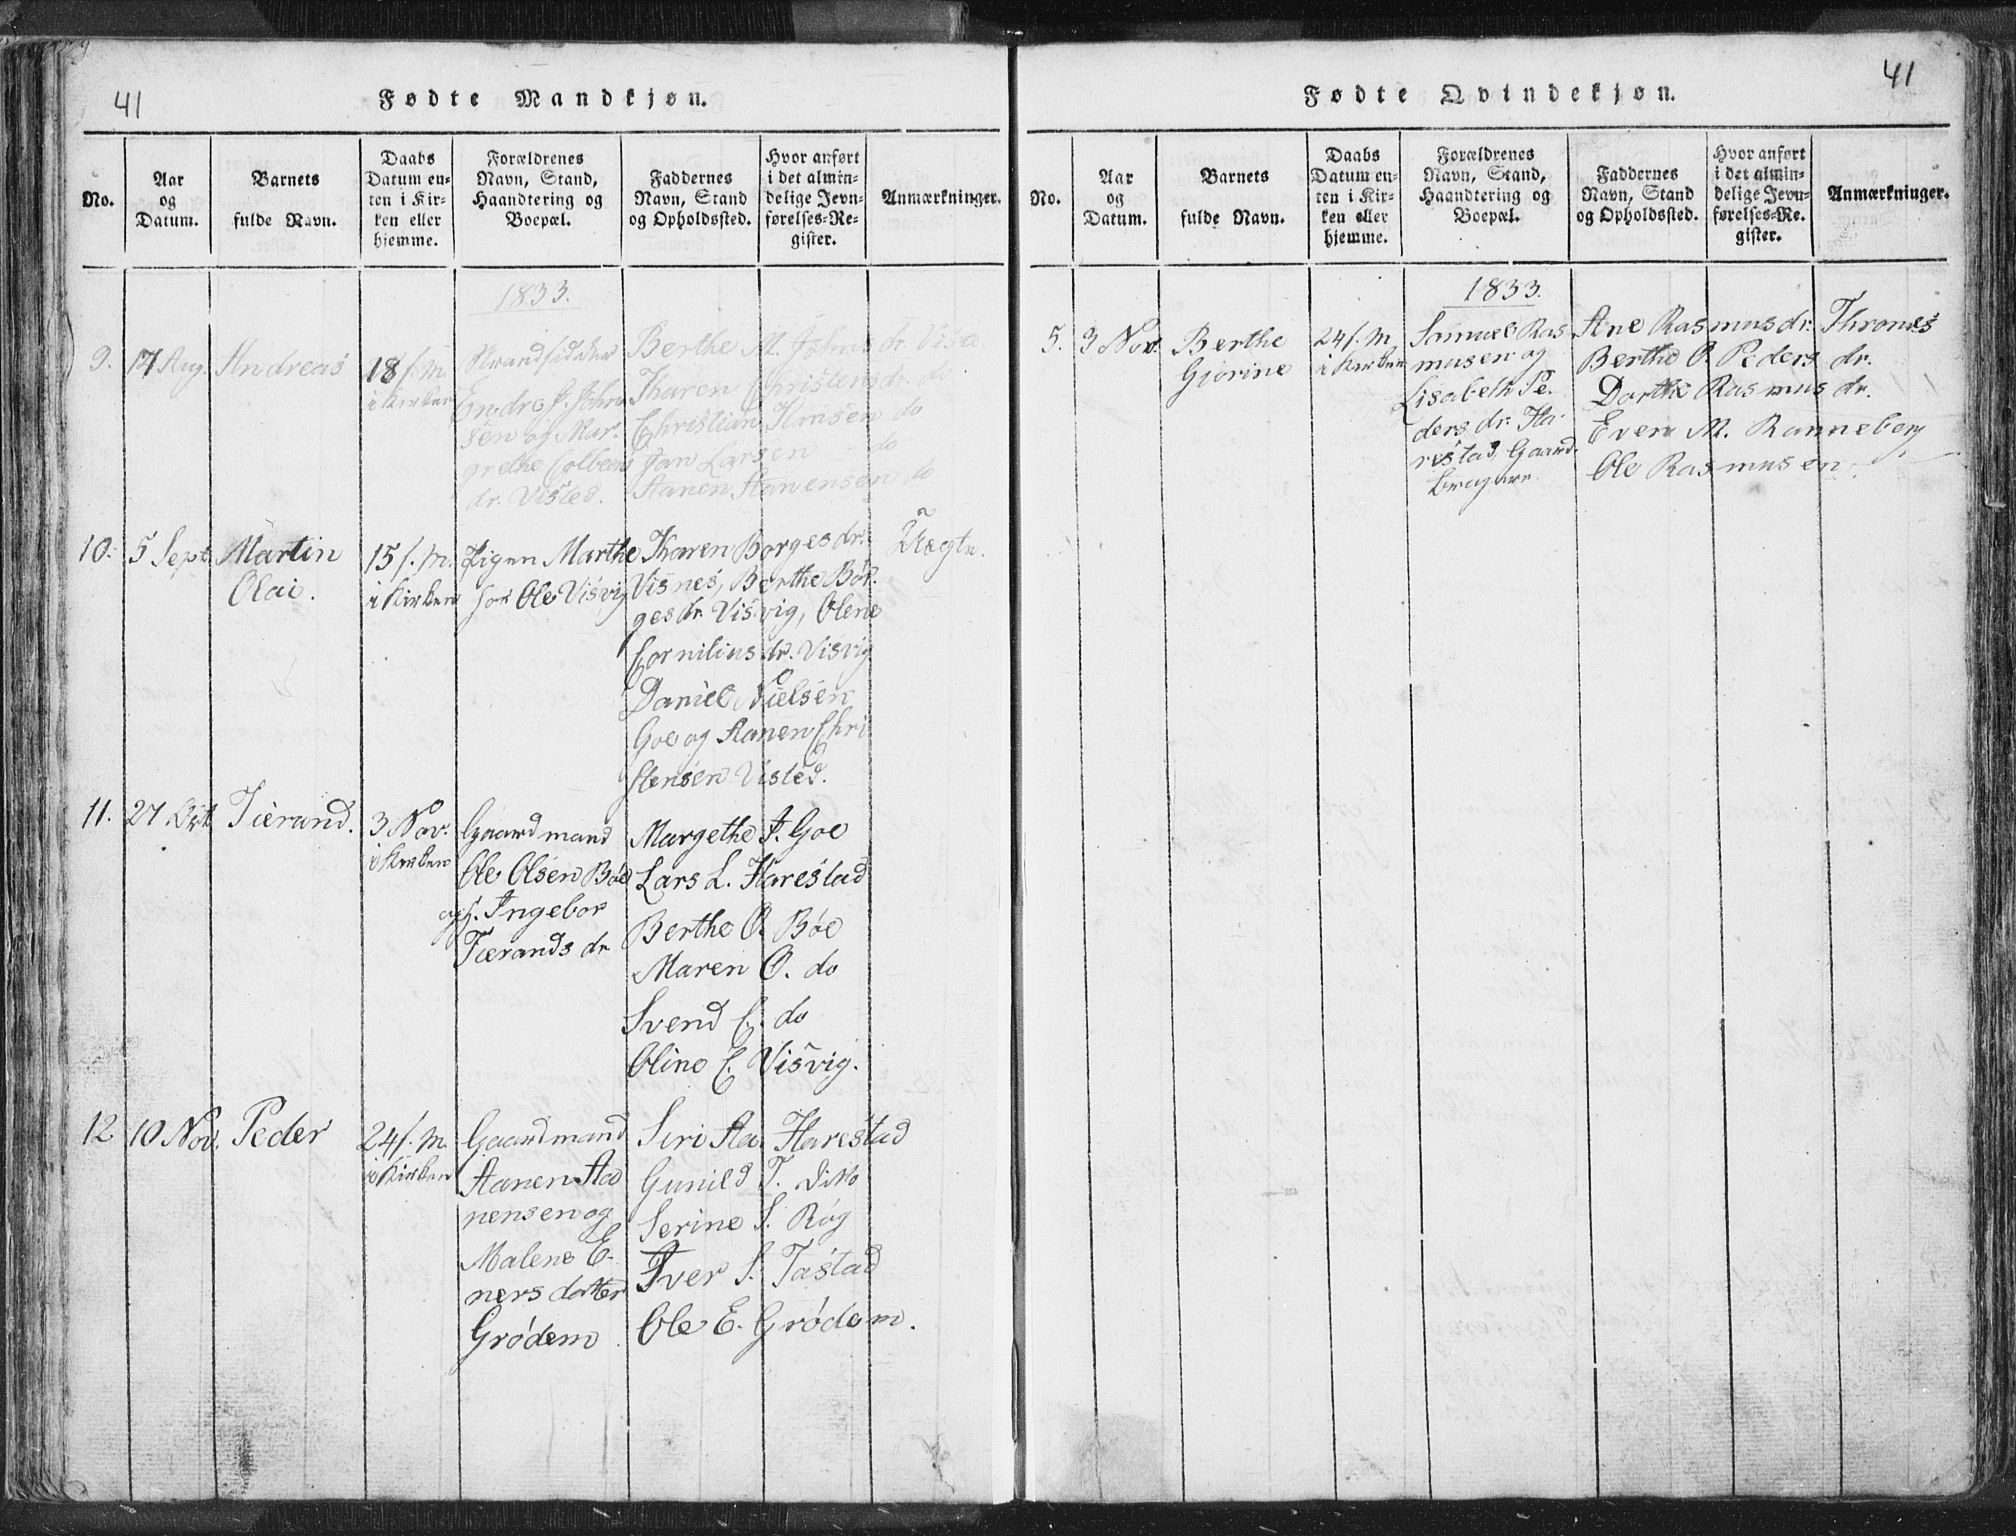 41
Fødte Mandkjøn.
No.
Aar
og
Datum.
Barnets
fulde Navn.
Daabs
Datum en-
ten i Kir-
ken eller
hjemme.
Forældrenes
Navn, Stand,
Haandtering og
Boepæl.
Faddernes
Navn, Stand
og Opholdssted.
Hvor anført
i det almin-
delige Jevn-
førelses-Re-
gister.
Anmærkninger.
1833.
9.
17 Aug.
Andreas
18 s. M.
i Kirken
Strandsidder
Endre J. John
sen og Mar-
grethe Colbens
dr. Visted.
Berthe M. Johns dr. Viste
Karen Christens dr. do
Christian Hansen do
Jan Larsen do
Aanen Aanensen do
10.
5 Sept.
Martin
Olai.
15 s. M.
i Kirken
Pigen Marthe
for Ole Visvig
Karen Borges dr.
Visnes, Berthe Bør-
ges dr. Visvig, Olene
Cornilius dr. Visvig
Daniel Nielsen
Goe og Aanen Chri
stensen Visted.
Uægte.
11.
27 Oct.
Tierand.
3 Nov.
i Kirken
Gaardmand
Ole Olsen Bøe
og H. Ingebor
Tierands dr.
Margethe J. Goe
Lars L. Harestad
Berthe O. Bøe
Maren O. do
Svend C. do
Oline C. Visvig.
12
10 Nov.
Peder
24 s. M.
i Kirken
Gaardmand
Aanen Aa
nensen og
Malene E-
ners datter
Grødem
Siri Aa. Harestad
Gunild T. Dito
Serine S. Røg
Iver S. Tastad
Ole E. Grødem.
41
Fødte Qvindekjøn.
No.
Aar
og
Datum.
Barnets
fulde Navn.
Daabs
Datum en-
ten i Kir-
ken eller
hjemme.
Forældrenes
Navn, Stand,
Haandtering og
Boepæl.
Faddernes
Navn, Stand
og Opholdssted.
Hvor anført
i det almin-
delige Jevn-
førelses-Re-
gister.
Anmærkninger.
1833.
5.
3 Nov.
Berthe
Gjorine
24 s. M
i Kirken
Samuel Ras
musen og
Lisabeth Pe-
ders dr. Ha-
restad, Gaard-
brugere
Ane Rasmus dr. Thrones
Berthe O. Peders dr.
Dorthe Rasmus dr.
Even M. Ranneberg
Ole Rasmusen.